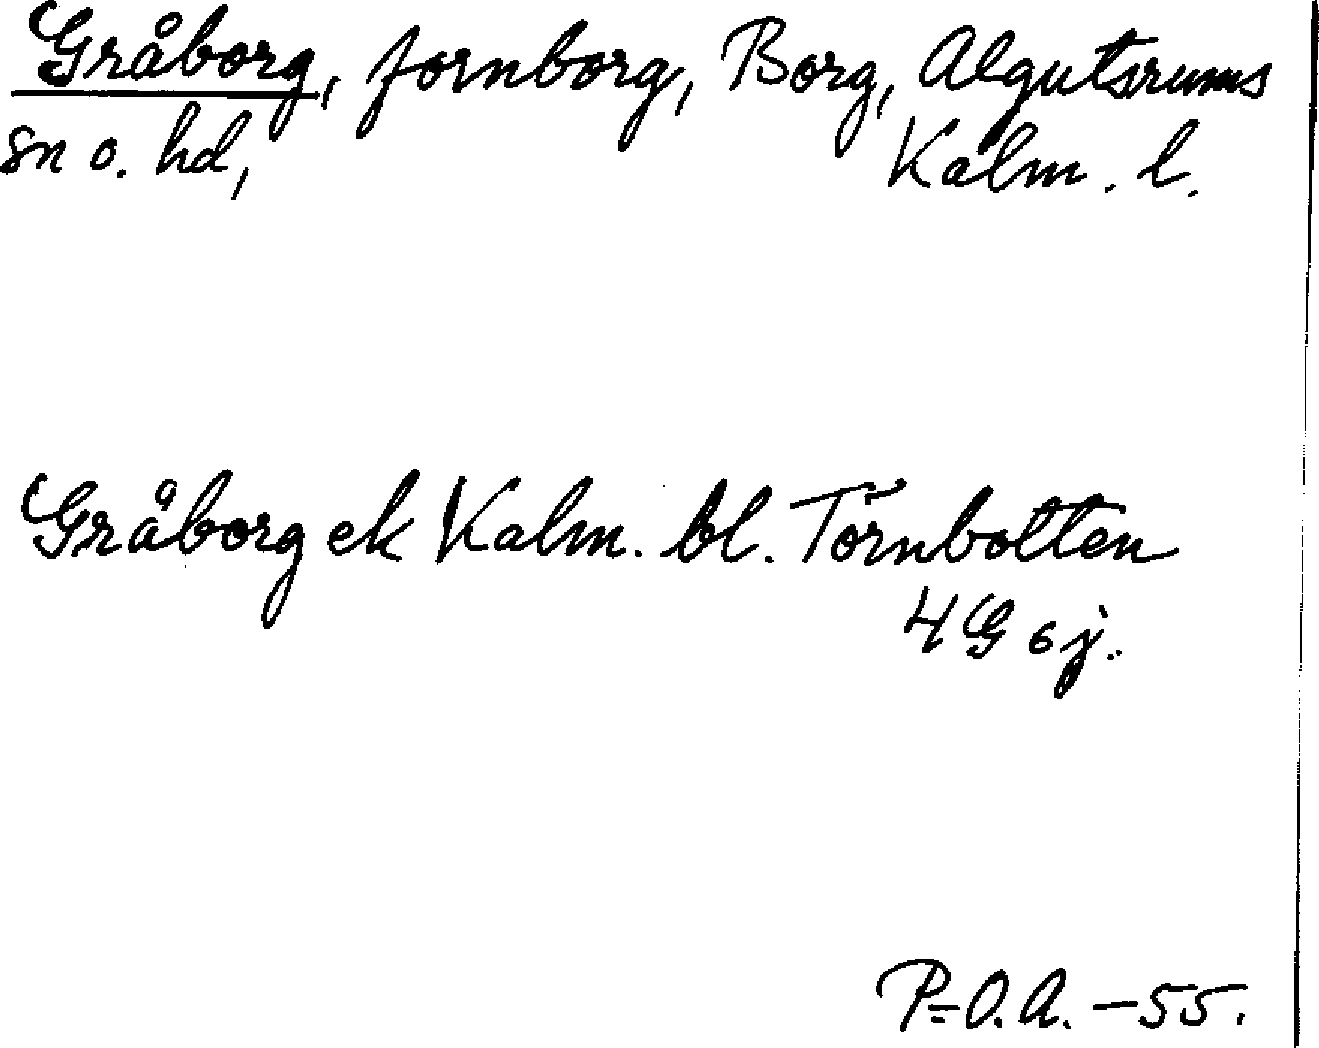 Gråborg, fornborg, Borg, Algutsrums
sn o. hd, Kalm. l.
Gråborg ek Kalm. bl. Törnbotten
4 G 6 j.
P-O.A. -55.